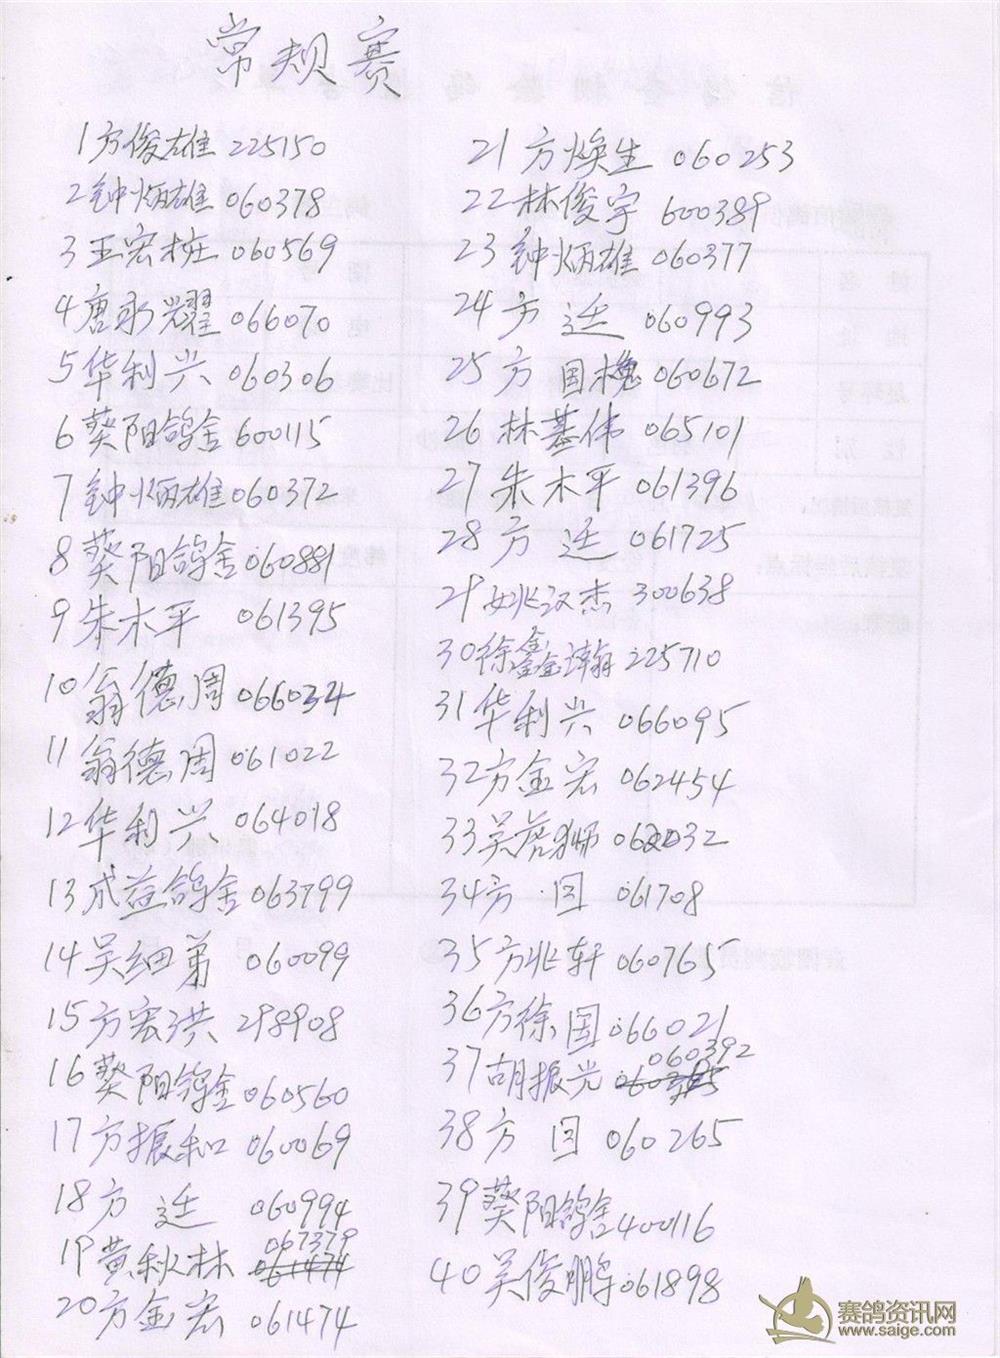 常规赛
1 方俊雄 225150
2 钟炳雄 060378
3 王宏桩 060569
4 唐永耀 066070
5 华利兴 060306
6 葵阳鸽舍 600115
7 钟炳雄 060372
8 葵阳鸽舍 060881
9 朱木平 061395
10 翁德周 066034
11 翁德周 061022
12 华利兴 064018
13 成益鸽舍 063799
14 吴细弟 060099
15 方宏洪 298908
16 葵阳鸽舍 060560
17 方振和 060069
18 方 廷 060994
19 黄秋林 067379
20 方金宏 061474
21 方焕生 060253
22 林俊宇 600389
23 钟炳雄 060377
24 方 廷 060993
25 方国槐 060672
26 林基伟 065101
27 朱木平 061396
28 方 廷 061725
29 姚汉杰 300638
30 徐鑫瀚 225710
31 华利兴 066095
32 方金宏 062454
33 吴彪狮
34 方 国 061708
35 方兆轩 060765
36 方徐国 066021
37 胡振光 060392
38 方 国 060265
39 葵阳鸽舍 400116
40 吴俊鹏 061898
赛鸽资讯网
www.saige.com